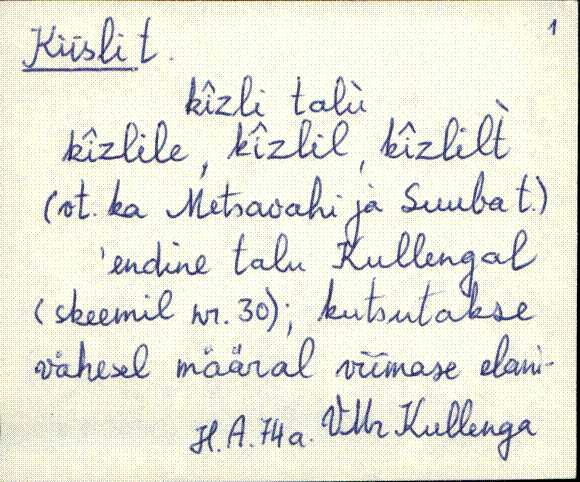 1
Kiisli t.
kîzli talù
kîzlile, kîzlil, kîzlilt̀
(vt. ka Metsavahi ja Suuba t.)
'endine talu Kullengal
(skeemil nr. 30); kutsutakse
vähesel määral viimase elani-
H.A. 74a. VMr Kullenga